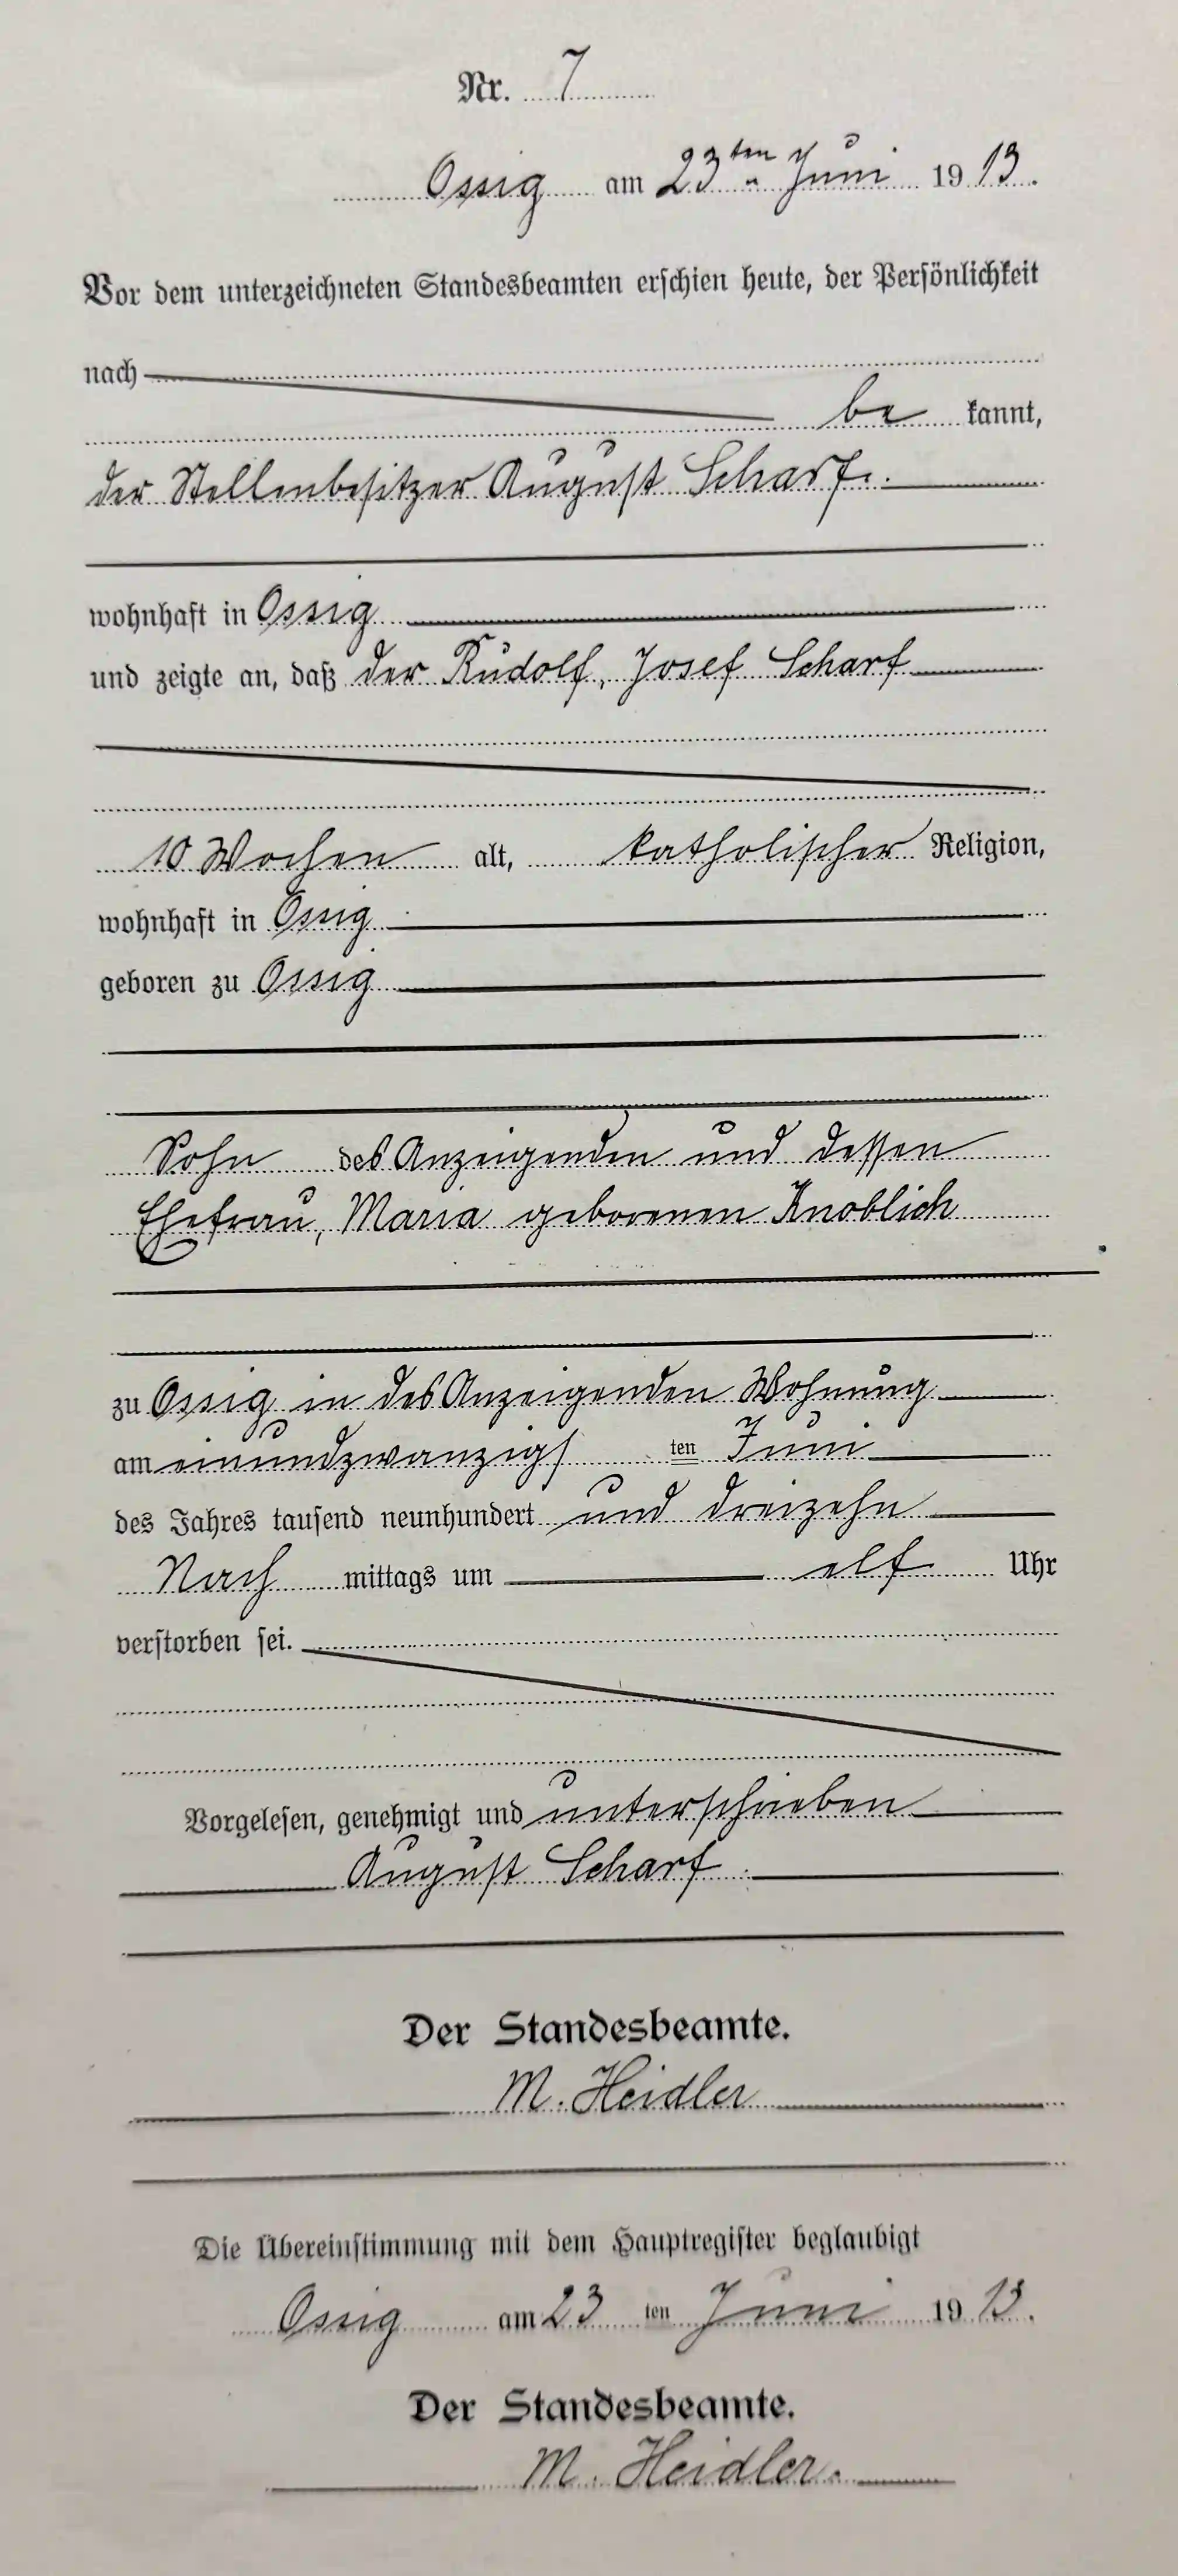 Nr. 7
Ossig am 23ten Juni 1913.
Vor dem unterzeichneten Standesbeamten erschien heute, der Persönlichkeit
nach
be kannt,
der Stellenbesitzer August Scharf.
wohnhaft in Ossig
und zeigte an, daß der Rudolf, Josef Scharf
10 Wochen alt, katholischer Religion,
wohnhaft in Ossig
geboren zu Ossig
Sohn des Anzeigenden und dessen
Ehefrau, Maria geborenen Knoblich
zu Ossig in des Anzeigenden Wohnung
am einundzwanzigs ten Juni
des Jahres tausend neunhundert und dreizehn
Nach mittags um elf Uhr
verstorben sei.
Vorgelesen, genehmigt und unterschrieben
August Scharf.
Der Standesbeamte.
M. Heidler
Die Übereinstimmung mit dem Hauptregister beglaubigt
Ossig am 23 ten Juni 1913.
Der Standesbeamte.
M. Heidler.